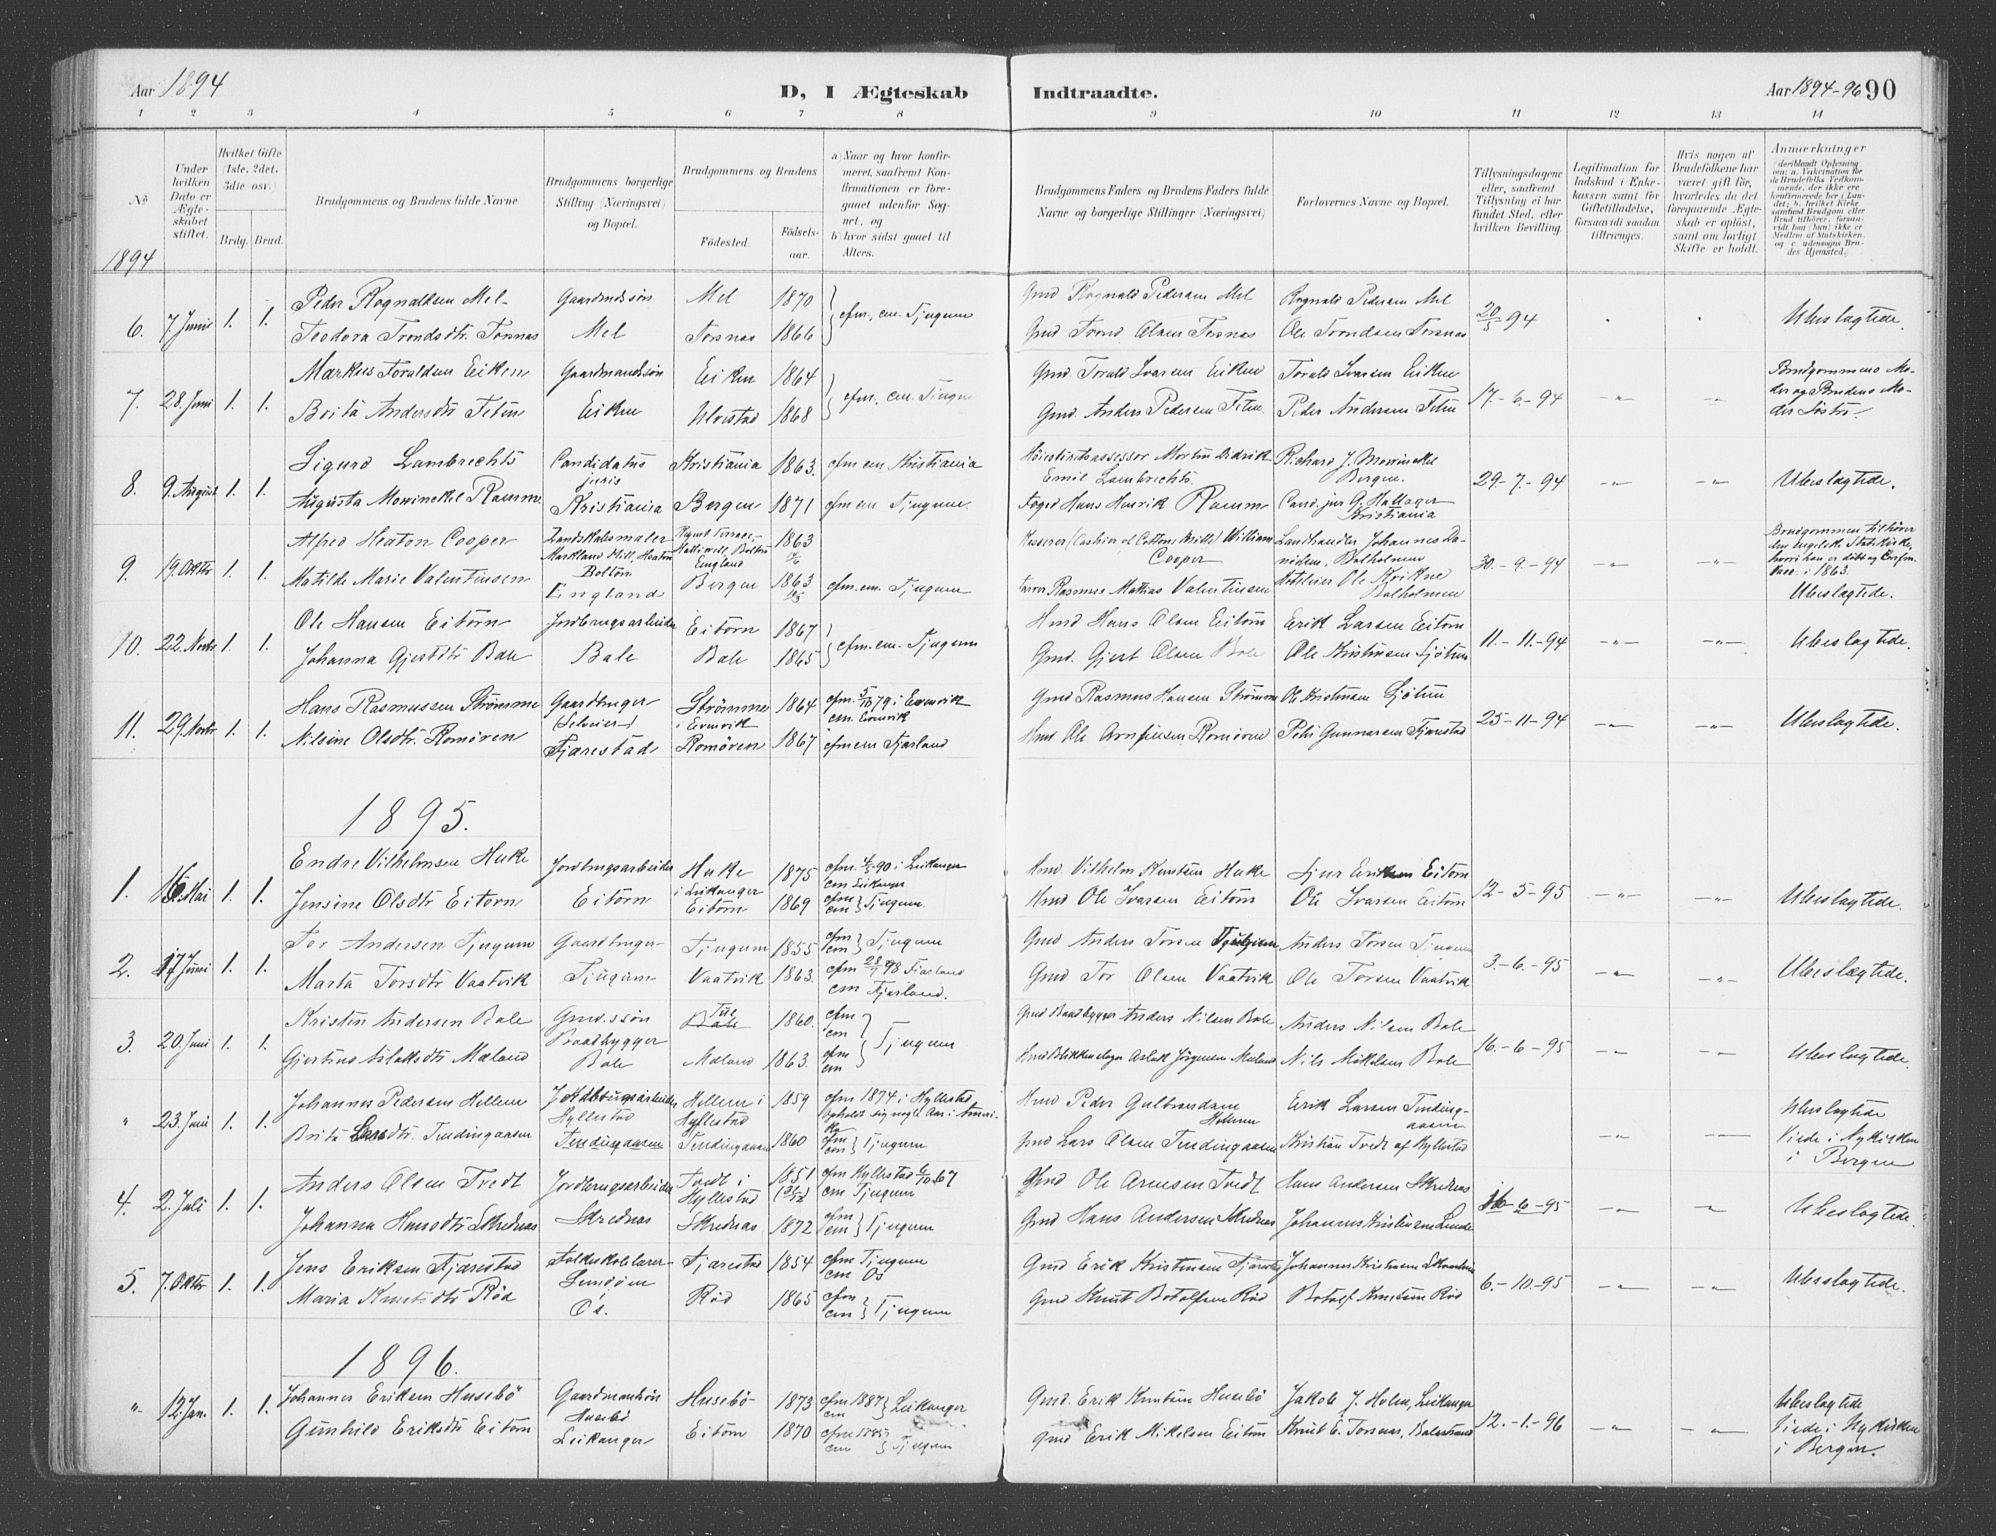 Aar 1894
D, I Ægteskab Indtraadte.
Aar 1894-96 90
1 2 3 4 5 6 7 8 9 10 11 12 13 14
No
Under hvilken Dato er Ægteskabet stiftet.
Hvilket Gifte (1ste, 2det, 3die osv.)
Brdg. Brud.
Brudgommens og Brudens fulde Navne
Brudgommens borgerlige Stilling (Næringsvei) og Bopæl.
Brudgommens og Brudens
Fødested.
Fødselsaar.
a) Naar og hvor konfirmeret, saafremt Konfirmationen er foregaaet udenfor Sognet, og
b) hvor sidst gaaet til Alters.
Brudgommens Faders og Brudens Faders fulde Navne og borgerlige Stillinger (Næringsvei)
Forlovernes Navne og Bopæl.
Tillysningsdagene eller, saafremt Tillysning ei har fundet Sted, efter hvilken Bevilling.
Legitimation for Indskud i Enkekassen samt for Giftetilladelse, forsaavidt saadan tiltrænges.
Hvis nogen af Brudefolkene har været gift før, hvorledes da det foregaaende Ægteskab er opløst, samt om lovligt Skifte er holdt.
Anmærkninger
1894
6. 7. Juni 1. 1. Peder Rognaldsen Mel Gaardmdssøn Mel 1870 cfm., cm. Tjugum Gmd Rognald Pedersen Mel Rognald Pedersen Mel 20/5 94 Ubeslagtede.
Teodora Trondsdtr. Torsnas Mel Torsnas 1866 Gmd Trond Olsen Torsnas Ole Trondsen Torsnas
7. 28. Juni 1. 1. Markus Toraldsen Eiken Gaardmandssøn Eiken 1864 cfm., cm. Tjugum Gmd Torald Ivarsen Eiken Torald Ivarsen Eiken 17.-6-94 Brudgommens Moder og Brudens Moder Søstre.
Brita Andersdtr Fetun Eiken Ulvestad 1868 Gmd Anders Pedersen Fetun. Peder Andersen Fetun
8. 9. August 1. 1. Sigurd Lambrechts Candidatus juris Kristiania 1863. cfm cm Kristiania Høiestretsassessor Morten Didrik Emil Lambrechts. Richard J. Mowinckel Bergen. 29.-7-94 Ubeslagtede.
Augusta Mowinckel Ramm. Kristiania Bergen 1871 cfm cm Tjugum. Foged Hans Henrik Ramm Cand. jur G. Hallager Kristiania
9. 19. Oktbr 1. 1. Alfred Heaton Cooper Landskabsmaler Markland Hill, Heaton Bolton England Regent Terrace, Halliwell Bolton England 1863 Kasserer (Cashier of Cotton Mill) William Cooper Landhandler Johannes Danielsen, Balholmen 30.-9-94 Brudgommen tilhører den engelske Statskirke, hvori han er døbt og
i 1863. Ubeslagtede.
Matilde Marie Valentinsen Bergen 1863 cfm. cm. Tjugum Rasmus Mathias Valentinsen Hotelleier Ole Kvikne Balholmen
10. 22. Novbr 1. 1. Ole Hansen Eitorn Jordbrugsarbeider Eitorn 1867 cfm. cm. Tjugum Hmd Hans Olsen Eitorn Erik Larsen Eitorn 11.-11-94 Ubeslagtede.
Johanna Gjertsdtr Bale Bale Bale 1865 Gmd. Gjert Olsen Bale Ole Kristensen Sjøtun
11. 29. Novbr 1. 1. Hans Rasmussen Strømme Gaardbruger (Selveier) Strømme i Evenvik 1864 cfm. 5/10 79 i Evenvik cm. Evenvik Gmd Rasmus Hansen Strømme Ole Kristensen Sjøtun 25-11-94 Ubeslagtede.
Nilsine Olsdtr. Romøren Fjarestad Romøren 1867 cfm cm Fjarland Hmd Ole Arnfinsen Romøren Gunnarsen Fjarestad
1895.
1. 16. Mai 1. 1. Endre Vilhelmsen Huke Jordbrugsarbeider Huke i Leikanger 1875 cfm. 90 i Leikanger cm Leikanger Hmd. Vilhelm Knutsen Huke Sjur Eriksen Eitorn 12-5-95 Ubeslagtede.
Jensine Olsdtr Eitorn Eitorn Eitorn 1869 cfm cm Tjugum. Hmd Ole Ivarsen Eitorn Ole Ivarsen Eitorn
2. 17 Juni 1. 1. Tor Andersen Tjugum Gaardbruger Tjugum 1855 cfm cm Tjugum Gmd Anders Torsen Tjugum Anders Torsen Tjugum 3.-6-95 Ubeslægtede.
Marta Torsdtr Vaatvik Tjugum Vaatvik 1863. cfm Fjarland cm Fjarland. Gmd Tor Olsen Vaatvik Ole Torsen Vaatvik
3. 20. Juni 1. 1. Kristen Andersen Bale Gmds.søn Baadbygger Bale 1860. cfm cm Gmd Baadbygger Anders Nilsen Bale Anders Nilsen Bale 16.-6-95 Ubeslagtede.
Gjertine Aslaksdtr Mæland Bale Mæland 1863. cfm cm Tjugum Aslak Jørgensen Mæland Nils Mikelsen Bale
" 23. Juni 1. 1. Johannes Pedersen Hellem Jordbrugsarbeider Hyllestad Hellem i Hyllestad 1859 cfm 1874 i Hyllestad Opholdt sig nogle Aar i Amerika Hmd Peder Gulbrandsen Hellem Erik Larsen Tendingaasen Ubeslagtede Viede i Nykirken i Bergen
Brita Larsdtr. Tendingaasen Tendingaasen Tendingaasen 1860 cfm cm Tjugum Gmd Lars Olsen Tendingaasen Kristian Tvedt af Hyllestad
4. 2. Juli 1. 1. Anders Olsen Tvedt Jordbrugsarbeider Tvedt i Hyllestad 1851 cfm Hyllestad 67 cm Tjugum Gmd Ole Arnesen Tvedt Hans Andersen Skrednas 16-6-95 Ubeslagtede.
Johanna Hansdtr Skrednas Skrednas Skrednas 1872 cfm cm Tjugum Gmd Hans Andersen Skrednas Johannes Kristensen Lunde
5. 7. Oktbr 1. 1. Jens Eriksen Fjarestad Folkeskolelærer Fjarestad 1854 cfm Tjugum cm Os Gmd Erik Kristensen Fjarestad Johannes Kristensen 6.-10-95 Ubeslagtede.
Maria Knutsdtr Rød Os. Rød 1865 cfm cm Tjugum Gmd Knut Botolfsen Rød Botolf Knutsen Rød
1896.
" 12. Jan. 1. 1. Johannes Eriksen Husebø Gaardmandssøn Husebø Husebø 1873 cfm 1887 cm Leikanger Gmd. Erik Knutsen Husebø Jakob J. Holen, Leikanger 12.-1-96 Ubeslagtede Viede i Nykirken i Bergen.
Gunhild Eriksdtr Eitorn Leikanger Eitorn 1870 cfm 1885 cm Tjugum Gmd Erik Mikelsen Eitorn Knut E. Torsnas, Balestrand